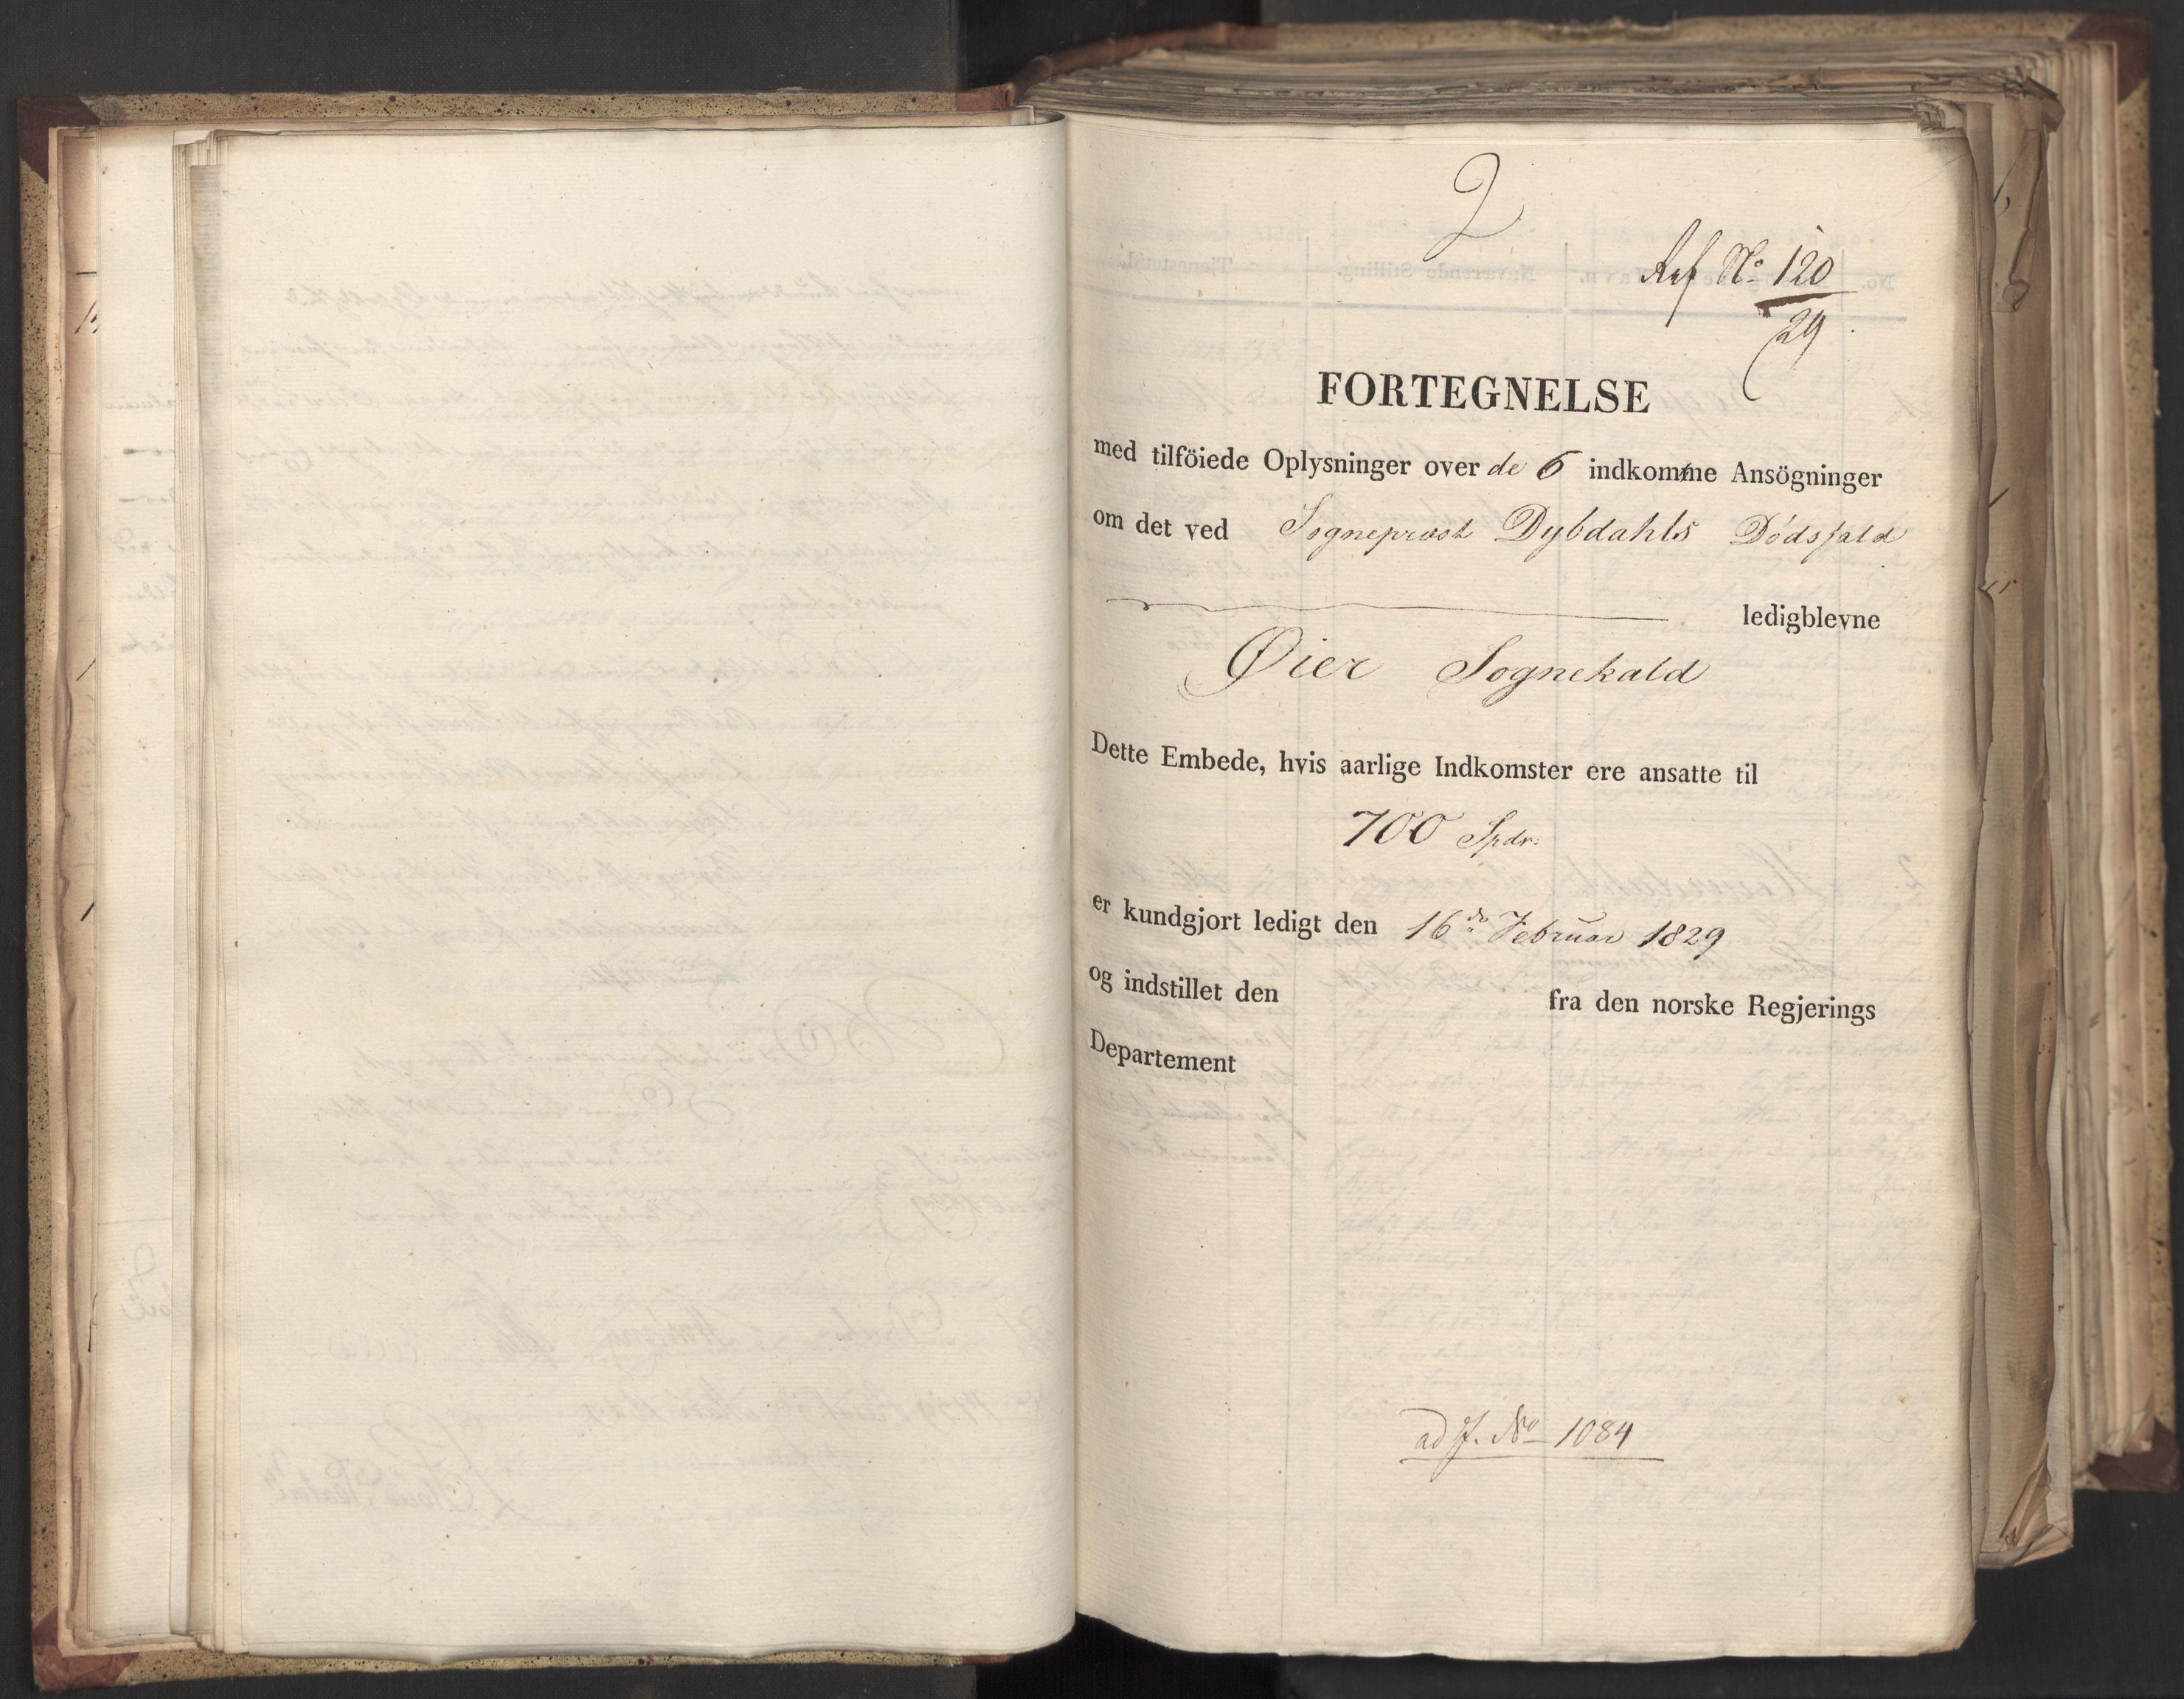 2
Ref No 120
29
FORTEGNELSE
med tilföiede Oplysninger over de 6 indkomne Ansögninger
om det ved Sognepræst Dybdahls Dödsfald
ledigblevne
Øier Sognekald
Dette Embede, hvis aarlige Indkomster ere ansatte til
700 Spdr.
er kundgjort ledigt den 16de Februar 1829
og indstillet den fra den norske Regjerings
Departement
ad J. No 1084